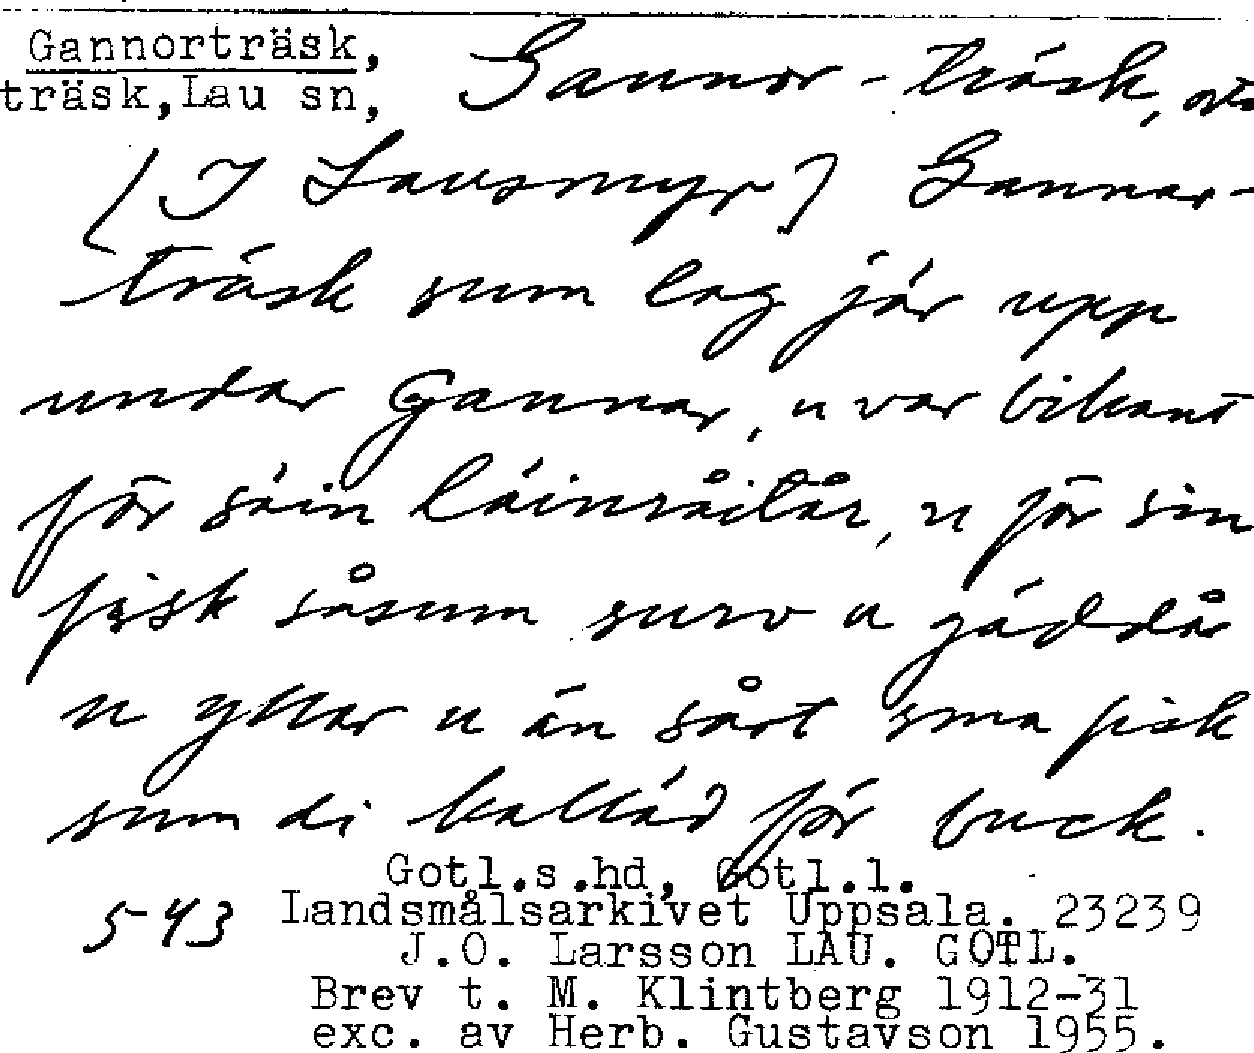 Gannorträsk, Gannor-träsk, ortn
träsk, Lau sn,
[I Lausmyr] Gannar-
träsk sum lag jär upp
undar Gannar, u var bikant
för säin läinråitår, u för sin
fisk såsum surv u gäddår
u yttar u än sårt sma fisk
sum di kalläd för buck.
Gotl.s.hd, Gotl.l.
543 Landsmålsarkivet Uppsala. 23239
J.O. Larsson LAU. GOTL.
Brev t. M. Klintberg 1912-31
exc. av Herb. Gustavson 1955.